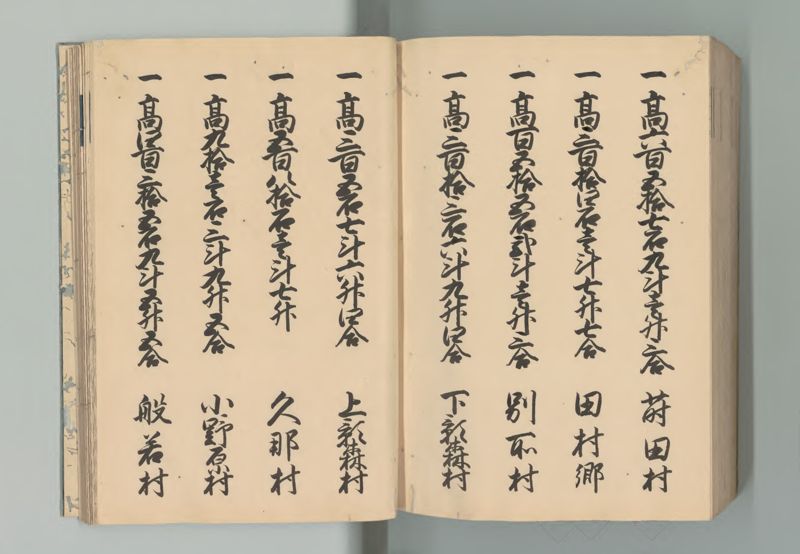 一 高六百五拾七石九斗壱升三合 蒔田村
一 高三百拾四石壱斗七升七合 田村郷
一 高百五拾五石弐斗壱升三合 別所村
一 高三百拾三石六斗九升四合 下影森村
一 高三百五石七斗六升四合 上影森村
一 高五百八拾石壱斗七升 久那村
一 高九拾壱石三斗九升五合 小野原村
一 高四百三拾五石九斗五升五合 般若村